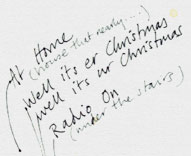 At Home
(house that nearly....)
Well it's er Christmas
well it's ur Christmas
Radio On
(under the stairs)